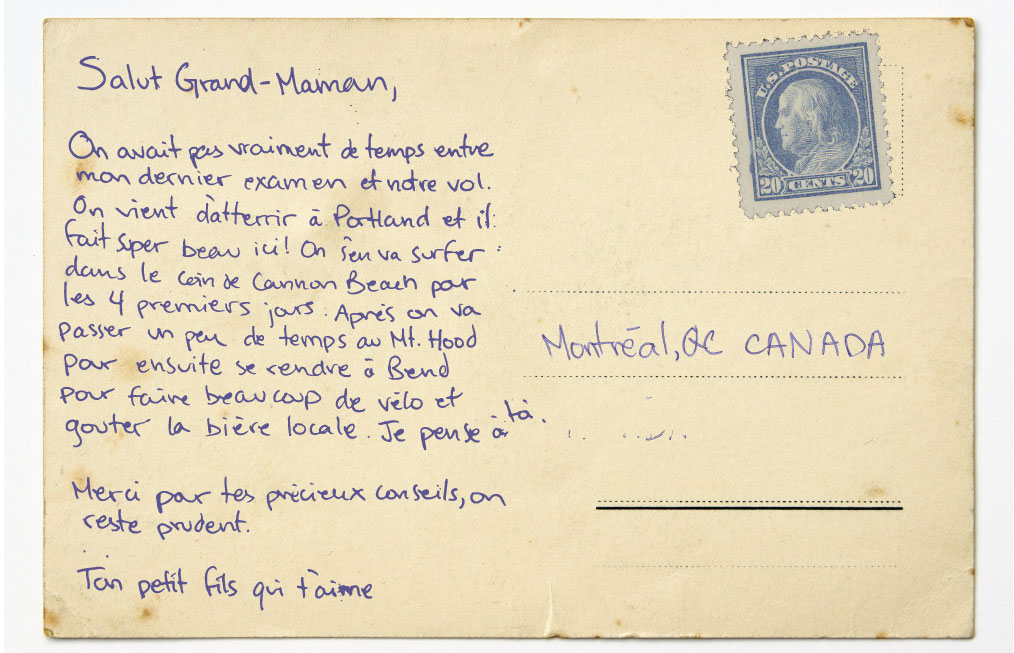 Salut Grand-Maman,
On avait pas vraiment de temps entre
mon dernier examen et notre vol.
On vient d'atterrir à Portland et il
fait super beau ici! On s'en va surfer
dans le coin de Cannon Beach pour
les 4 premiers jours. Après on va
passer un peu de temps au Mt. Hood
pour ensuite se rendre à Bend
pour faire beaucoup de vélo et
gouter la bière locale. Je pense à toi.
Merci pour tes précieux conseils, on
reste prudent.
Ton petit fils qui t'aime
U.S. POSTAGE
20 CENTS 20
Montréal, QC CANADA